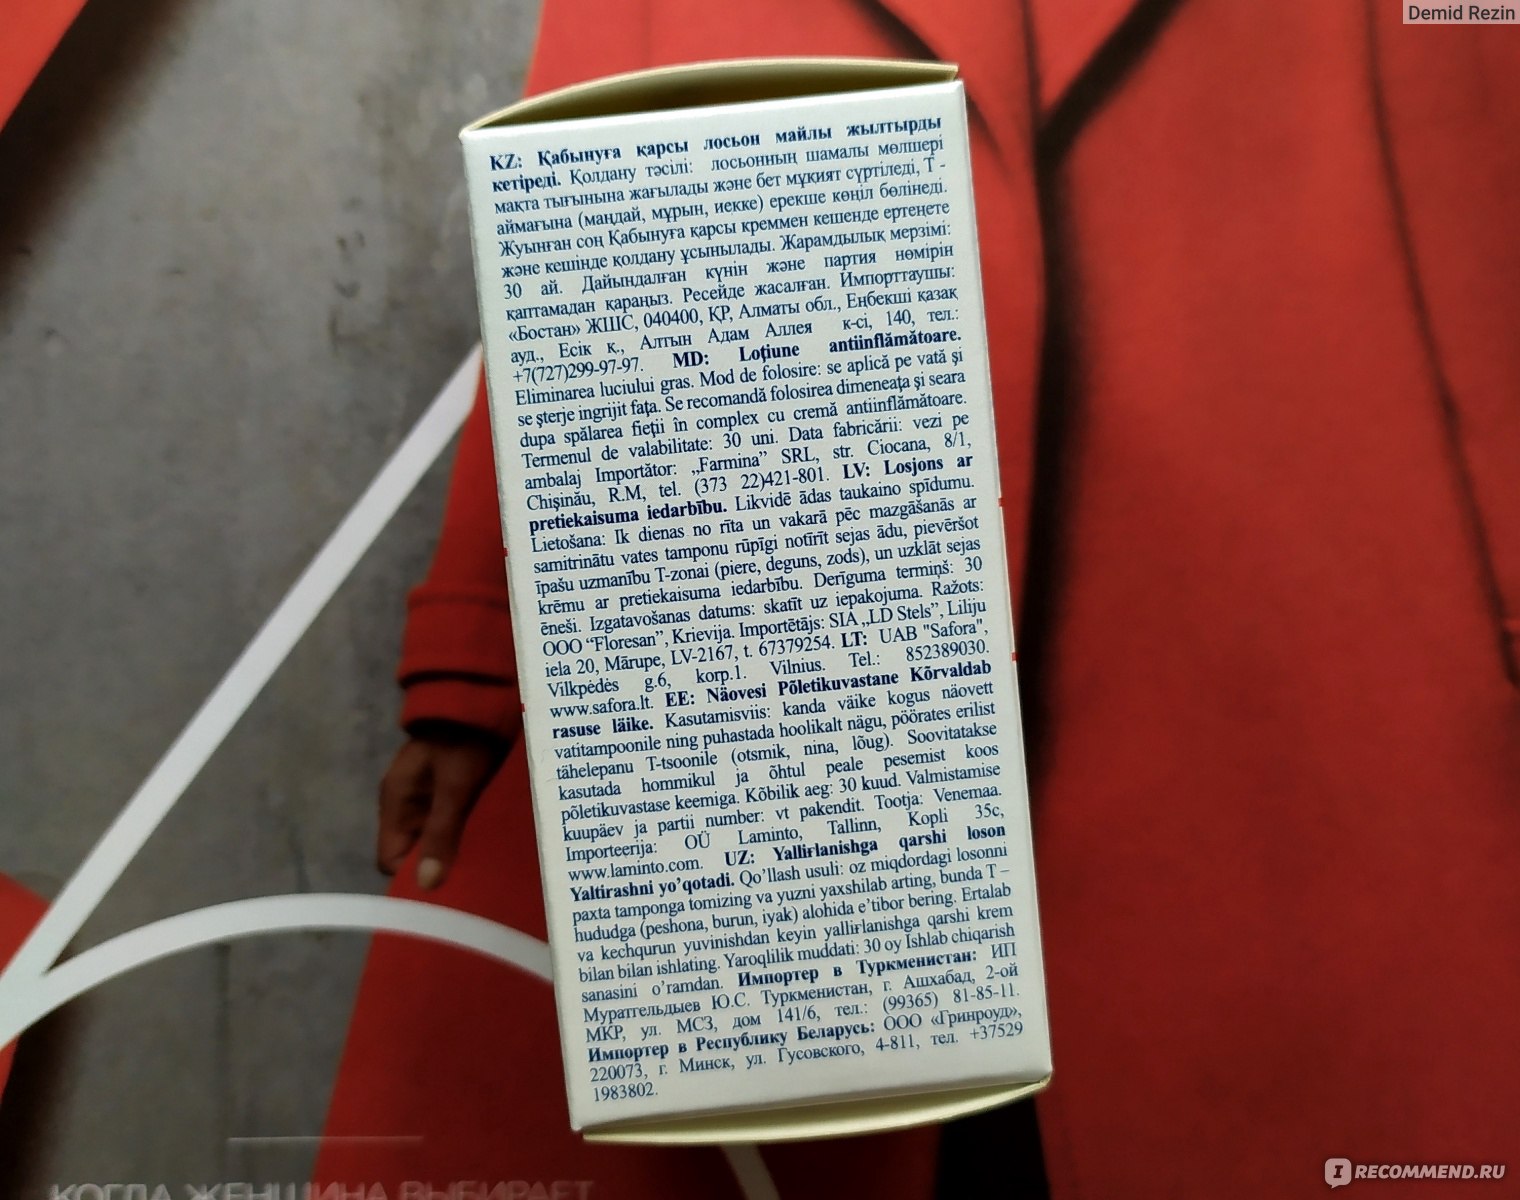 Demid Rezin
KZ: Қабынуға қарсы лосьон майлы жылтырды
кетіреді. Қолдану тәсілі: лосьонның шамалы мөлшері
мақта тығынына жағылады және бет мұқият сүртіледі, Т -
аймағына (маңдай, мұрын, иекке) ерекше көңіл бөлінеді.
Жуынған соң Қабынуға қарсы креммен кешенде ертеңете
және кешінде қолдану ұсынылады. Жарамдылық мерзімі:
30 ай. Дайындалған күнін және партия нөмірін
қаптамадан қараңыз. Ресейде жасалған. Импорттаушы:
«Бостан» ЖШС, 040400, ҚР, Алматы обл., Еңбекші қазақ
ауд., Есік қ., Алтын Адам Аллея к-сі, 140, тел.:
+7(727)299-97-97. MD: Loţiune antiinflămătoare.
Eliminarea luciului gras. Mod de folosire: se aplică pe vată şi
se şterje ingrijit faţa. Se recomandă folosirea dimeneaţa şi seara
dupa spălarea fieţii în complex cu cremă antiinflămătoare.
Termenul de valabilitate: 30 uni. Data fabricării: vezi pe
ambalaj Importător: „Farmina” SRL, str. Ciocana, 8/1,
Chişinău, R.M, tel. (373 22)421-801. LV: Losjons ar
pretiekaisuma iedarbību. Likvidē ādas taukaino spīdumu.
Lietošana: Ik dienas no rīta un vakarā pēc mazgāšanās ar
samitrinātu vates tamponu rūpīgi notīrīt sejas ādu, pievēršot
īpašu uzmanību T-zonai (piere, deguns, zods), un uzklāt sejas
krēmu ar pretiekaisuma iedarbību. Derīguma termiņš: 30
ēneši. Izgatavošanas datums: skatīt uz iepakojuma. Ražots:
OOO “Floresan”, Krievija. Importētājs: SIA „LD Stels”, Liliju
iela 20, Mārupe, LV-2167, t. 67379254. LT: UAB "Safora",
Vilkpėdės g.6, korp.1. Vilnius. Tel.: 852389030.
www.safora.lt. EE: Näovesi Põletikuvastane Kõrvaldab
rasuse läike. Kasutamisviis: kanda väike kogus näovett
vatitampoonile ning puhastada hoolikalt nägu, pöörates erilist
tähelepanu T-tsoonile (otsmik, nina, lõug). Soovitatakse
kasutada hommikul ja õhtul peale pesemist koos
põletikuvastase keemiga. Kõbilik aeg: 30 kuud. Valmistamise
kuupäev ja partii number: vt pakendit. Tootja: Venemaa.
Importeerija: OÜ Laminto, Tallinn, Kopli 35c,
www.laminto.com. UZ: Yallirlanishga qarshi loson
Yaltirashni yo’qotadi. Qo’llash usuli: oz miqdordagi losonni
paxta tamponga tomizing va yuzni yaxshilab arting, bunda T –
hududga (peshona, burun, iyak) alohida e’tibor bering. Ertalab
va kechqurun yuvinishdan keyin yallirlanishga qarshi krem
bilan bilan ishlating. Yaroqlilik muddati: 30 oy Ishlab chiqarish
sanasini o’ramdan. Импортер в Туркменистан: ИП
Муратгельдыев Ю.С. Туркменистан, г. Ашхабад, 2-ой
МКР, ул. МСЗ, дом 141/6, тел.: (99365) 81-85-11.
Импортер в Республику Беларусь: ООО «Гринроуд»,
220073, г. Минск, ул. Гусовского, 4-811, тел. +37529
1983802.
КОГДА ЖЕНЩИНА ВЫБИРАЕТ
IRECOMMEND.RU